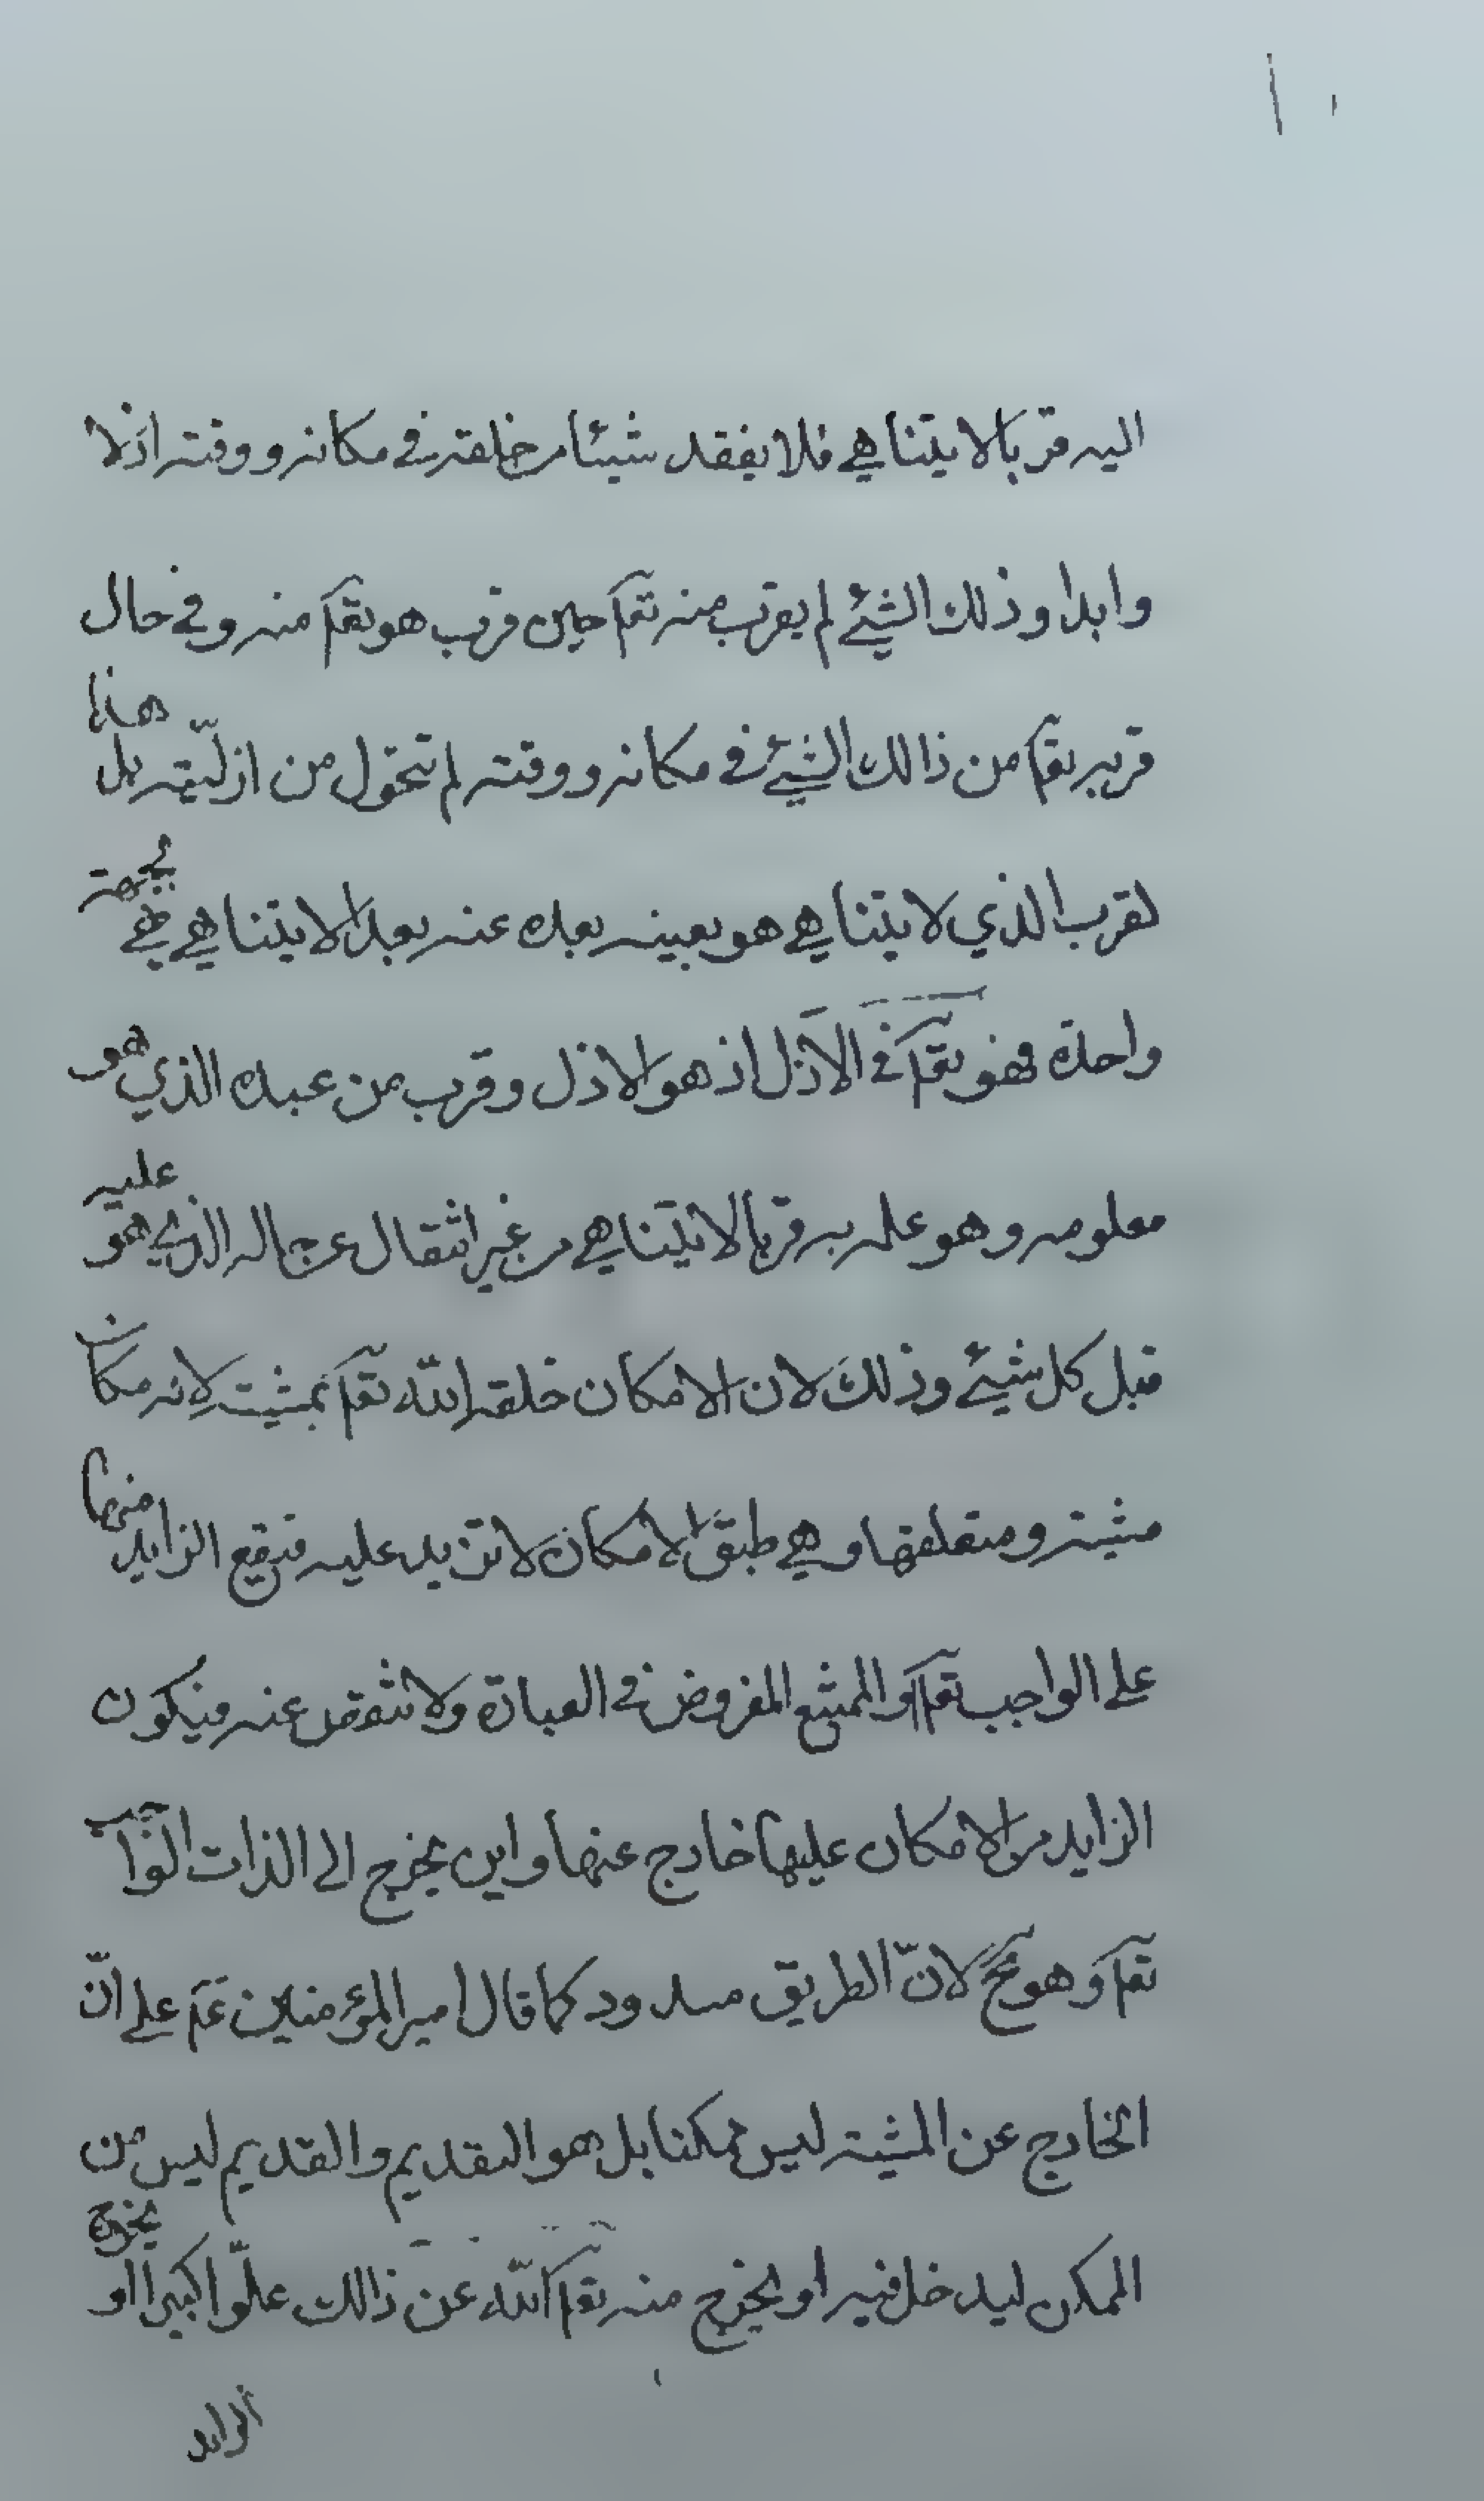 اليه قربا لا يتناهي فلا يفقد شيئا من خلقه في مكانه ووقته ازلا
وابدا وذلك الشيئ لم يقرب منه تعا حين قرب هو تعا منه وفي حال
قربه تعا من ذالك الشيئ في مكانه ووقته لم تتحول من ازليته بل هذا
لقرب الذي لا يتناهي هو بعينه بعده عنه بعدا لا يتناهي في جهة
واحدة فهو تعا في الازل اذ هو الازل وقرب من عبده الذي هو
معلومه وهو علمه به قربا لا يتناهي من غير انتقال عن حاله الذي هو عليه
قبل كل شيئ وذلك لان الامكان خلقه الله تعا بمشيته لانه مكان
مشيته ومتعلقها وهي طبق الامكان لا تزيد عليه فيقع الزايد منها
على الواجب تعا او الممتنع المفروض في العبارة ولا تنقص عنه فيكون
الزايد من الامكان عليها خارج عنها واين يخرج الى الذات الواجب
تعا وهو مح لان الطريق مسدود كما قال امير المؤمنين عم على ان
الخارج عن المشية ليس ممكنا بل هو القديم والقديم ليس من
الممكن ليدخل فيه او يخرج منه تعا الله عن ذالك علوا كبيرا او يخرج
الزايد